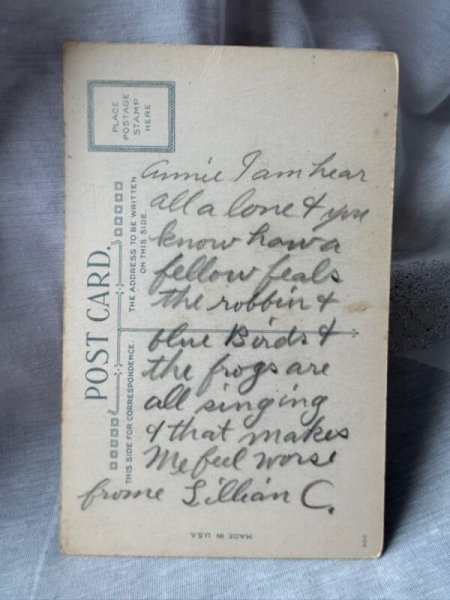 PLACE
POSTAGE
STAMP
HERE
POST CARD.
THE ADDRESS TO BE WRITTEN
ON THIS SIDE.
THIS SIDE FOR CORRESPONDENCE
Annie I am hear
all a lone & you
know how a
fellow feals
the robbin &
blue Birds &
the frogs are
all singing
& that makes
Me feel worse
frome Lillian C.
MADE IN U.S.A.